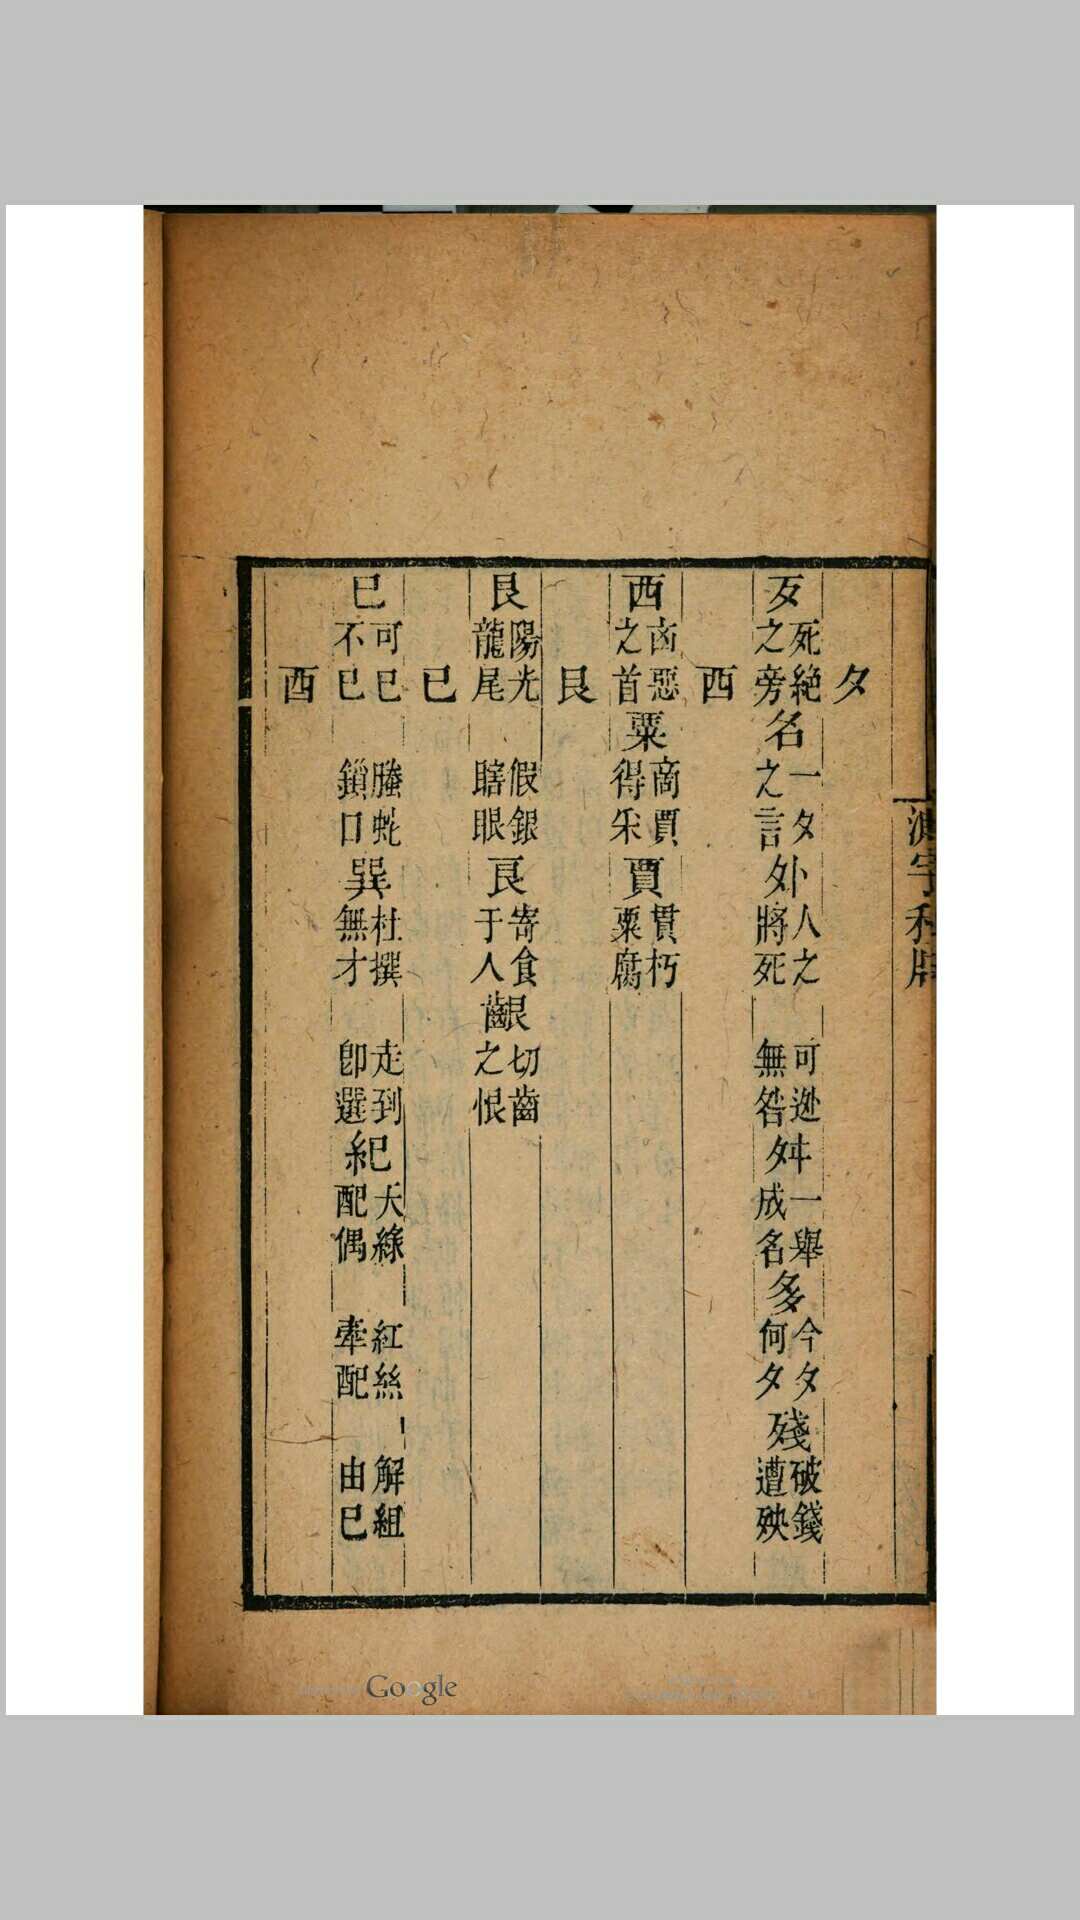 測字秘牒
夕
歹 死絶之旁 名 一夕之言 外 卜人之將死 可逃無咎 夕㐄 一舉成名 多 今夕何夕 殘 破錢遭殃
西
西 卤惡之首 粟 商賈得采 賈 貫朽粟腐
艮
艮 陽光龍尾 假銀瞎眼 良 寄食于人 齦 切齒之恨
巳
巳 可巳不巳 螣蛇鎖口 巽 杜撰無才 走到卽選 紀 天緣配偶 紅絲牽配 解組由巳
酉
Google